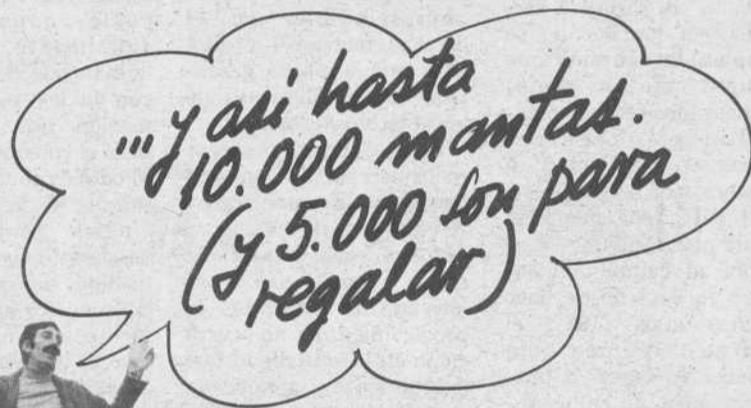 ...y asi hasta
10.000 mantas.
(y 5.000 son para
regalar)